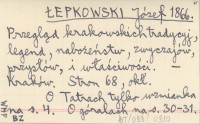 ŁEPKOWSKI Józef 1866.
Przegląd krakowskich tradycyj,
legend, nabożeństw, zwyczajów,
przysłów, i właściwości. –
Kraków. Stron 68, okł.
O Tatrach tylko wzmianka
na s. 4. O góralach na s. 30-31.
BZ